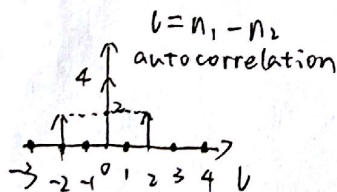 l = n₁ - n₂
autocorrelation
4
2
-3 -2 -1 0 1 2 3 4 l